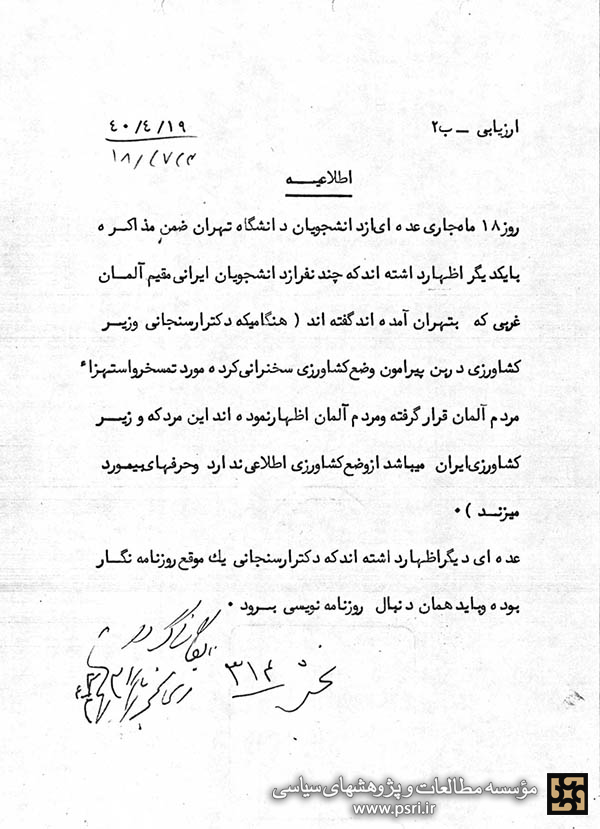 ارزیابی - ب۲
۴۰/۴/۱۹
اطلاعیه
روز ۱۸ ماه جاری عده ای از دانشجویان دانشگاه تهران ضمن مذاکره
با یکدیگر اظهار داشته اند که چند نفر از دانشجویان ایرانی مقیم آلمان
غربی که بتهران آمده اند گفته اند ( هنگامیکه دکتر ارسنجانی وزیر
کشاورزی در بن پیرامون وضع کشاورزی سخنرانی کرده مورد تمسخر و استهزاء
مردم آلمان قرار گرفته و مردم آلمان اظهار نموده اند این مرد که وزیر
کشاورزی ایران میباشد از وضع کشاورزی اطلاعی ندارد و حرفهای بیمورد
میزند ) .
عده ای دیگر اظهار داشته اند که دکتر ارسنجانی یك موقع روزنامه نگار
بوده و باید همان دنبال روزنامه نویسی برود .
۳۱۴
مؤسسه مطالعات و پژوهشهای سیاسی
www.psri.ir